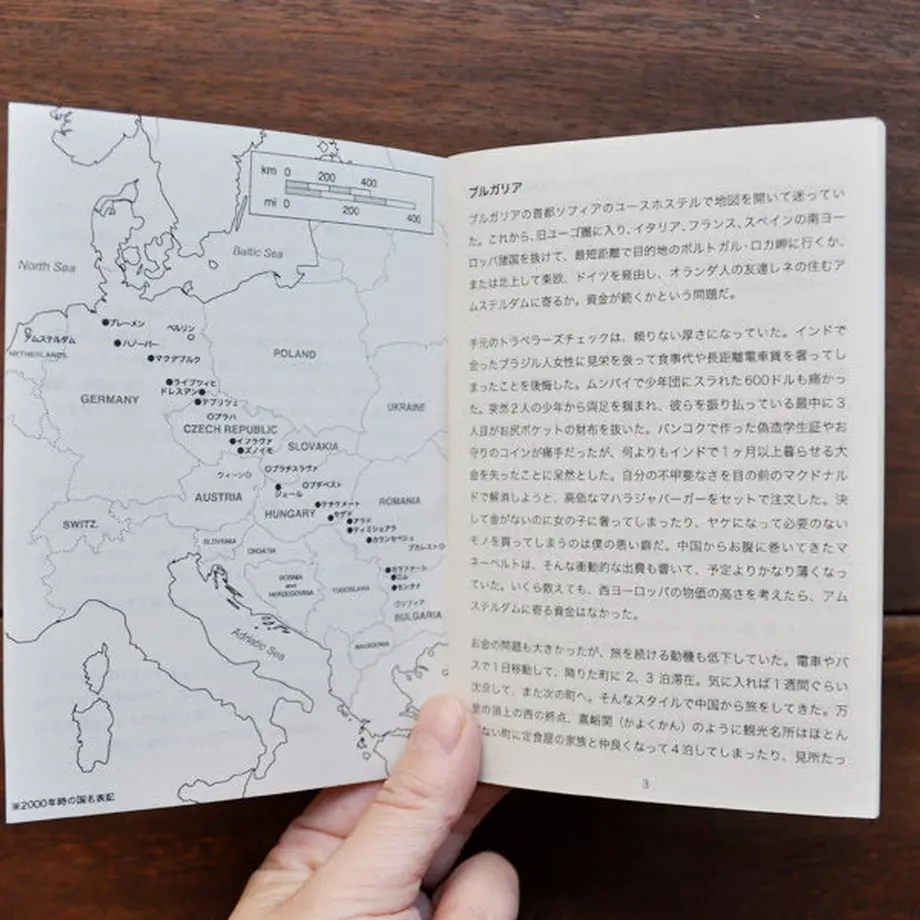 km 0 200 400
mi 0 200 400
North Sea
Baltic Sea
アムステルダム
NETHERLANDS
ブレーメン
ベルリン
ハノーバー
マクデブルク
POLAND
ライプツィヒ
ドレスデン
GERMANY
プラハ
UKRAINE
CZECH REPUBLIC
イフラヴァ
ズノイモ
SLOVAKIA
ウィーン
ブラチスラヴァ
ブダペスト
ジェール
AUSTRIA
ケチケメート
セゲド
HUNGARY
ROMANIA
アラド
ティミショアラ
カランセベシュ
ブカレスト
SWITZ.
SLOVENIA
CROATIA
BOSNIA
and
HERZEGOVINA
YUGOSLAVIA
カラファート
ロム
モンタナ
ソフィア
BULGARIA
Adriatic Sea
MACEDONIA
※2000年時の国名表記
ブルガリア
ブルガリアの首都ソフィアのユースホステルで地図を開いて迷ってい
た。これから、旧ユーゴ圏に入り、イタリア、フランス、スペインの南ヨー
ロッパ諸国を抜けて、最短距離で目的地のポルトガル・ロカ岬に行くか、
または北上して東欧、ドイツを経由し、オランダ人の友達レネの住むア
ムステルダムに寄るか。資金が続くかという問題だ。
手元のトラベラーズチェックは、頼りない厚さになっていた。インドで
会ったブラジル人女性に見栄を張って食事代や長距離電車賃を奢ってし
まったことを後悔した。ムンバイで少年団にスラれた600ドルも痛かっ
た。突然2人の少年から両足を掴まれ、彼らを振り払っている最中に3
人目がお尻ポケットの財布を抜いた。バンコクで作った偽造学生証やお
守りのコインが痛手だったが、何よりもインドで1ヶ月以上暮らせる大
金を失ったことに呆然とした。自分の不甲斐なさを目の前のマクドナル
ドで解消しようと、高価なマハラジャバーガーをセットで注文した。決
して金がないのに女の子に奢ってしまったり、ヤケになって必要のない
モノを買ってしまうのは僕の悪い癖だ。中国からお腹に巻いてきたマ
ネーベルトは、そんな衝動的な出費も響いて、予定よりかなり薄くなっ
ていた。いくら数えても、西ヨーロッパの物価の高さを考えたら、アム
ステルダムに寄る資金はなかった。
お金の問題も大きかったが、旅を続ける動機も低下していた。電車やバ
スで1日移動して、降りた町に2、3泊滞在。気に入れば1週間ぐらい
沈没して、また次の町へ。そんなスタイルで中国から旅をしてきた。万
里の頂上の西の終点、嘉峪関（かよくかん）のように観光名所はほとん
ない町に定食屋の家族と仲良くなって4泊してしまったり、見所たっ
3